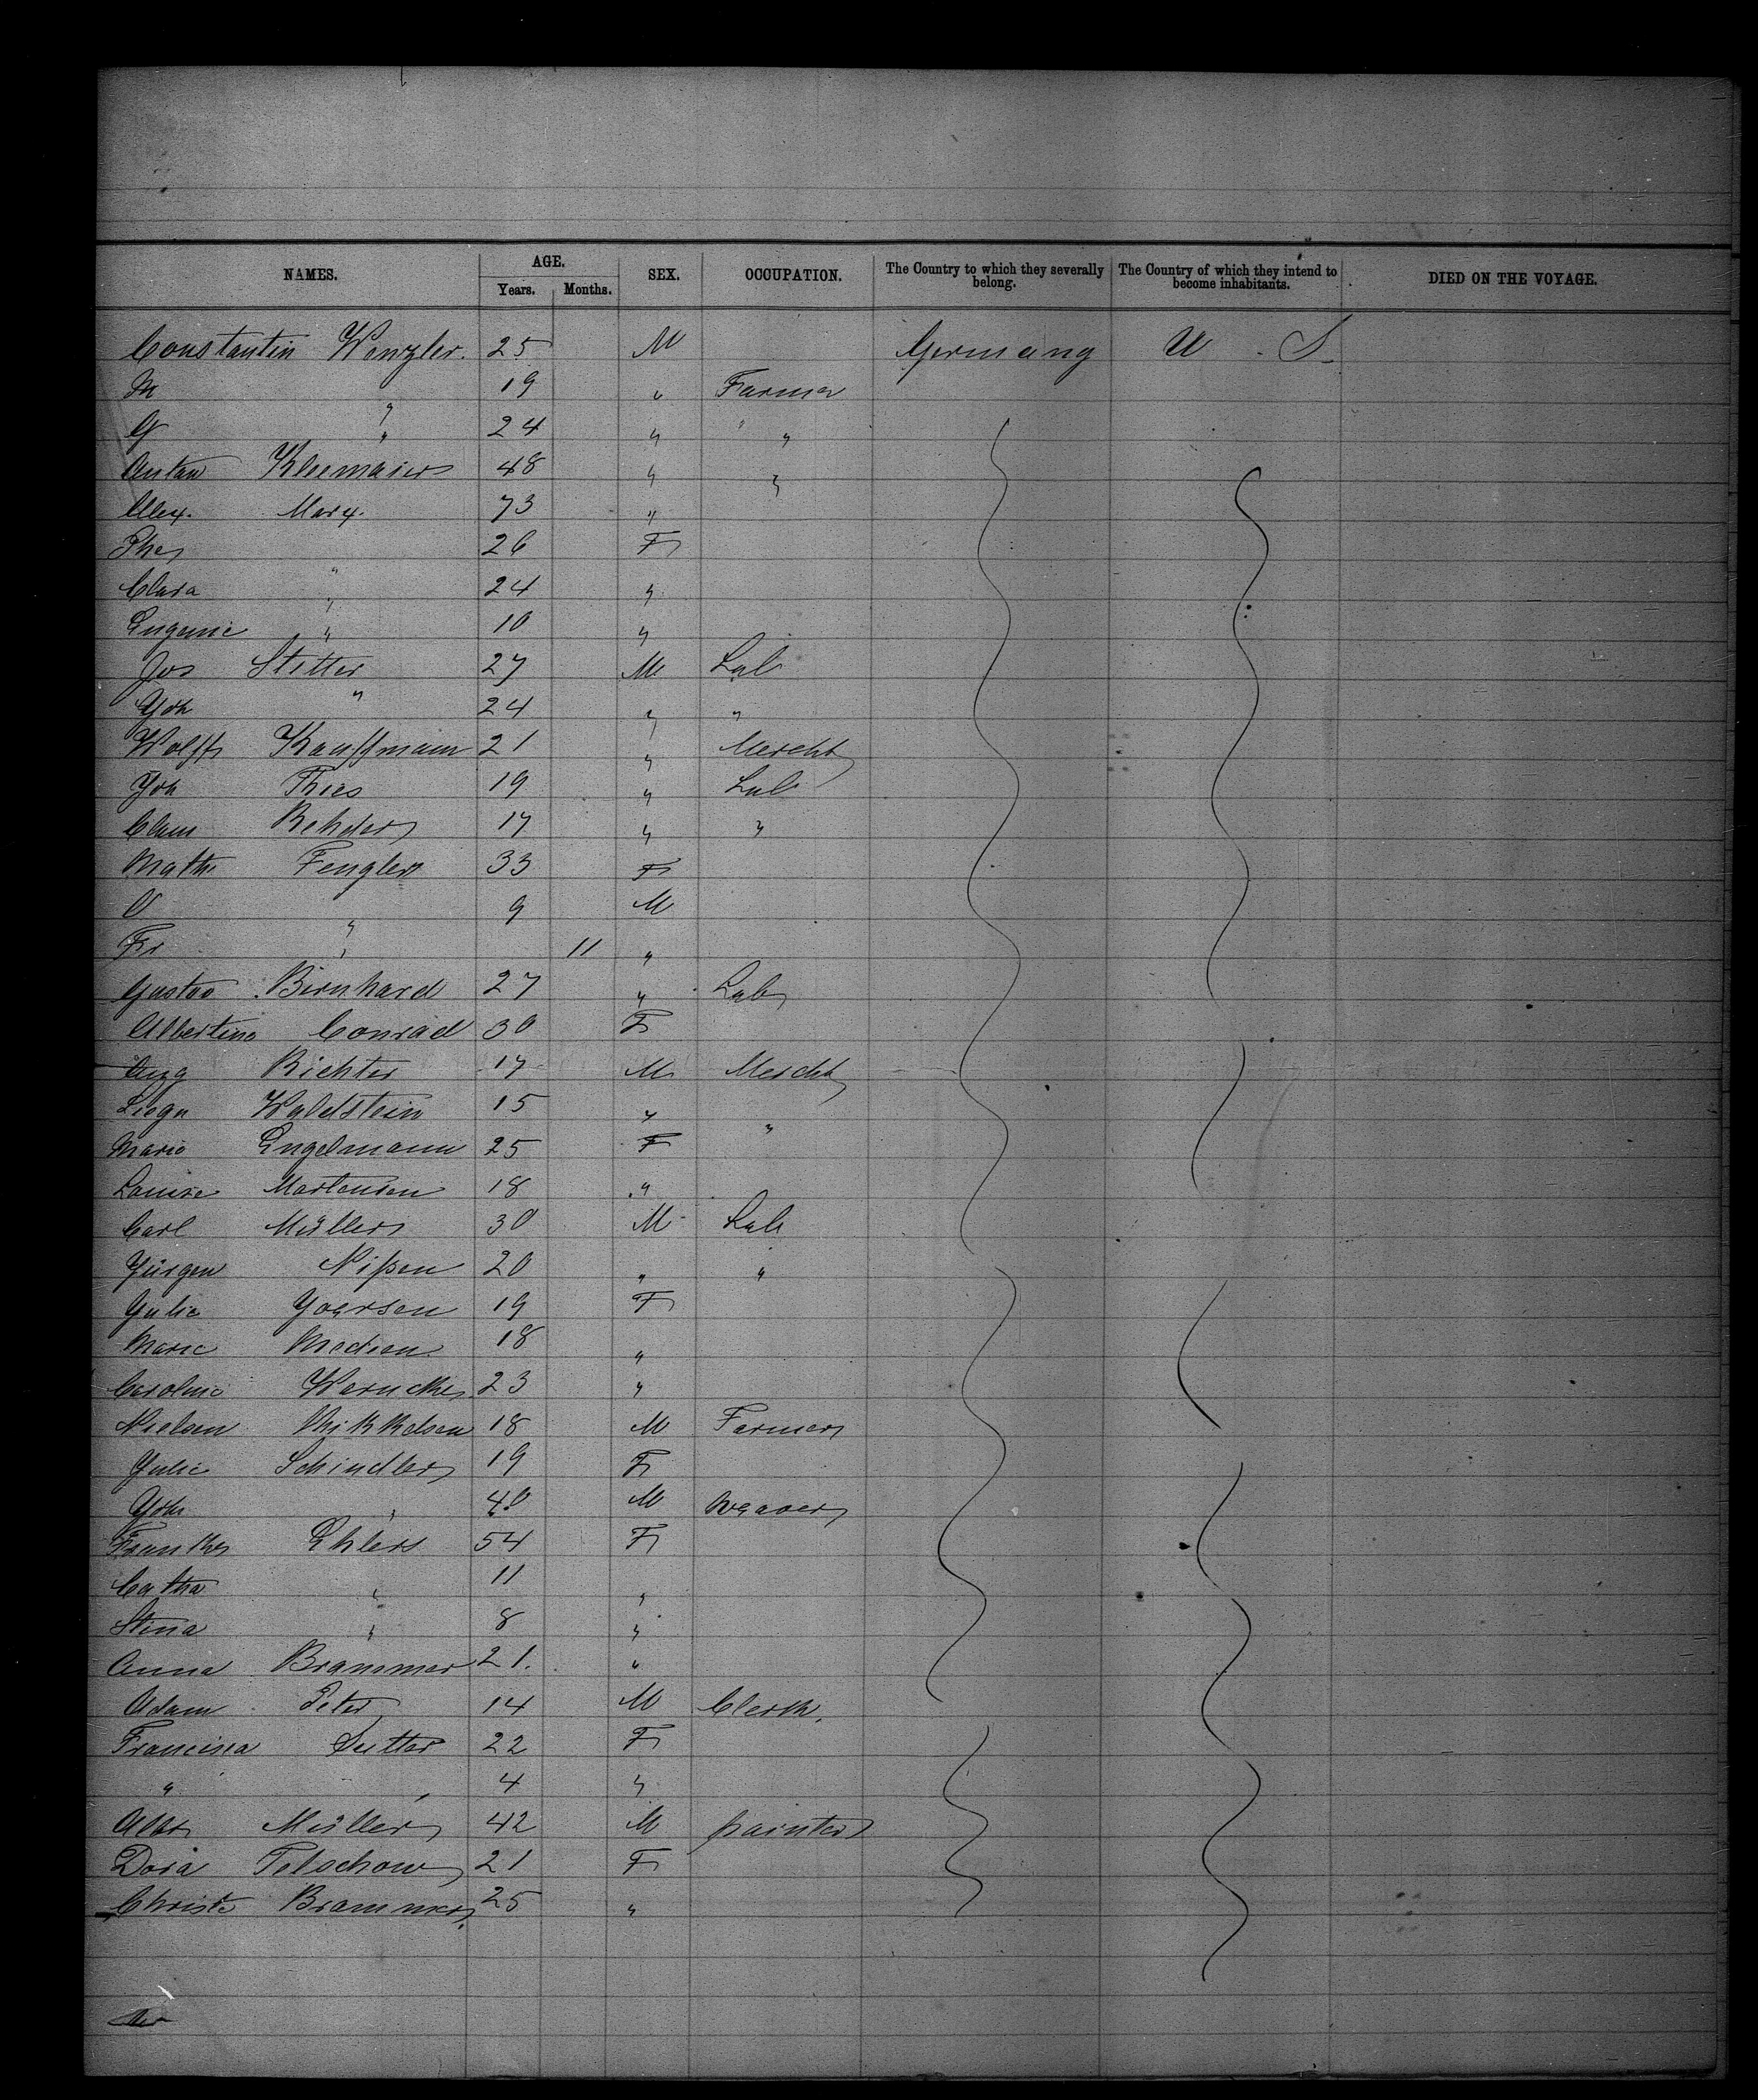 NAMES. AGE. SEX. OCCUPATION. The Country to which they severally belong. The Country of which they intend to become inhabitants. DIED ON THE VOYAGE.
Years. Months.
Constantin Wenzler. 25 M Germany U. S.
M " 19 " Farmer
G " 24 " "
Anton Kleemaier 48 " "
Alex. Marx. 73 "
Ther " 26 F
Clara " 24 "
Eugenie " 10 "
Jos Stetter 27 M Lab
Joh " 24 " "
Wolff Kauffmann 21 " Mercht
Joh Thies 19 " Lab
Claus Rehder 17 " "
Math Fengler 33 F
O " 9 M
Fr " 11 "
Gustav Birnhard 27 " Lab
Albertine Conrad 30 F
Aug Richter 17 M Mercht
Waldstein 15 " "
Marie Engelmann 25 F
Louise Martensen 18 "
Carl Müller 30 M Lab
Jürgen Nißen 20 " "
Julie 19 F
Marie Madsen 18 "
Caroline Warncke 23 "
Nielsen Mikkelsen 18 M Farmer
Julie Schindler 19 F
Joh " 40 M Weaver
Ehlers 54 F
Catha " 11 "
Stina " 8 "
Anna Brammer 21. "
Adam Peter 14 M Clerk.
Francisca Sutter 22 F
" " 4 "
Alb Müller 42 M painter
Dora Telschow 21 F
Christe Brammer. 25 "